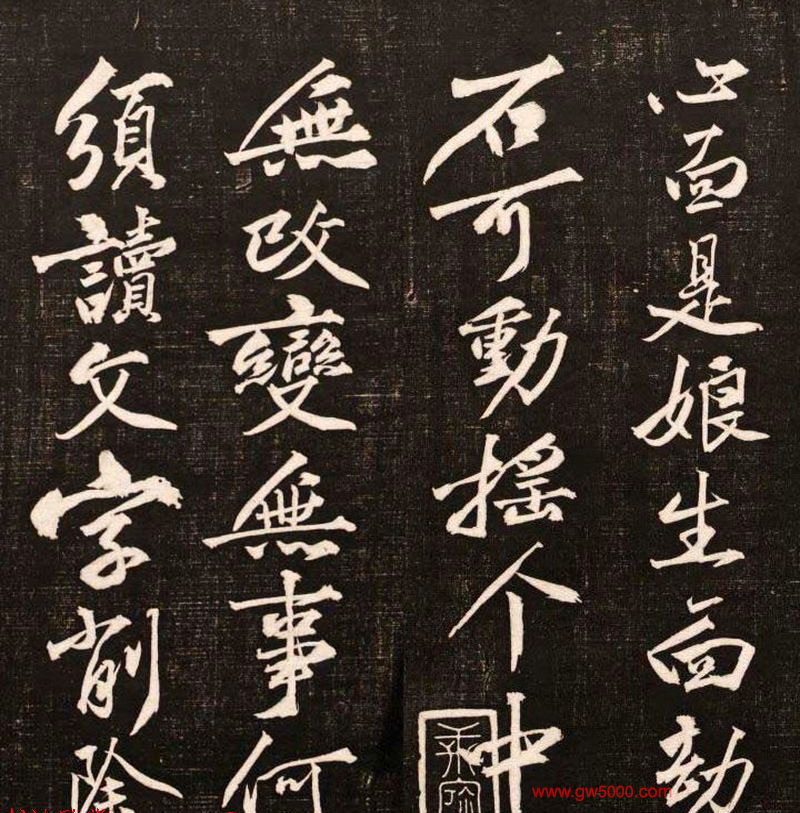 此面是娘生面劫
石可動搖个中
無改變無事何
須讀文字削除
www.gw5000.com